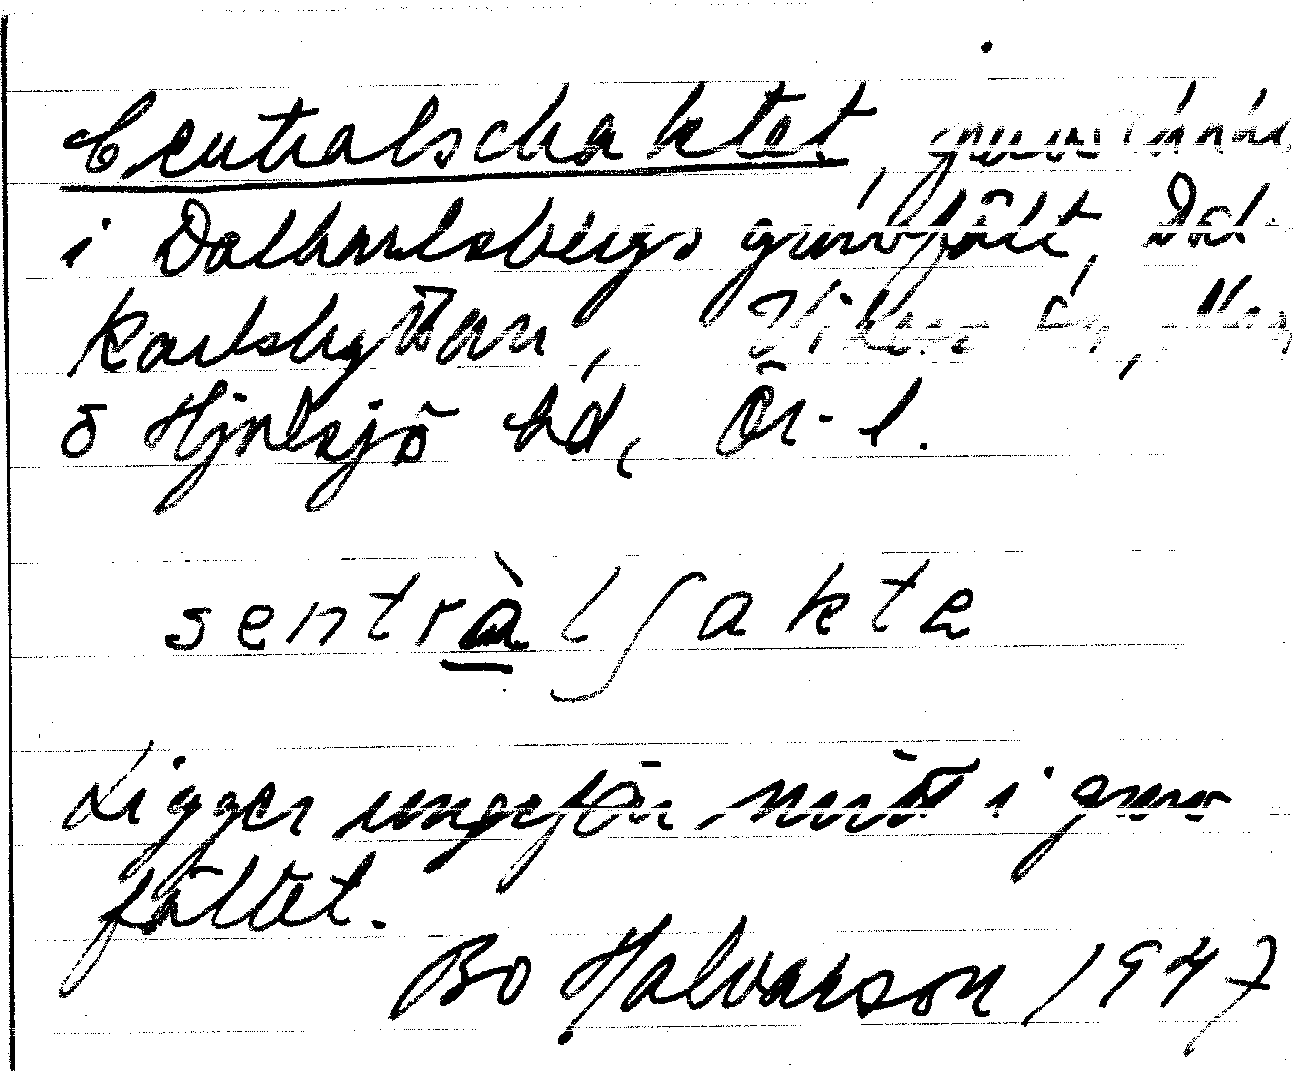 Centralschaktet,
i Dalkarlsbergs gruvfält, Dal-
karlshyttan, Vikers
o Hjulsjö bd, Ör. l.
sentràlʃakta
Ligger ungefär mitt i gruv-
fältet.
Bo Halvarson 1947